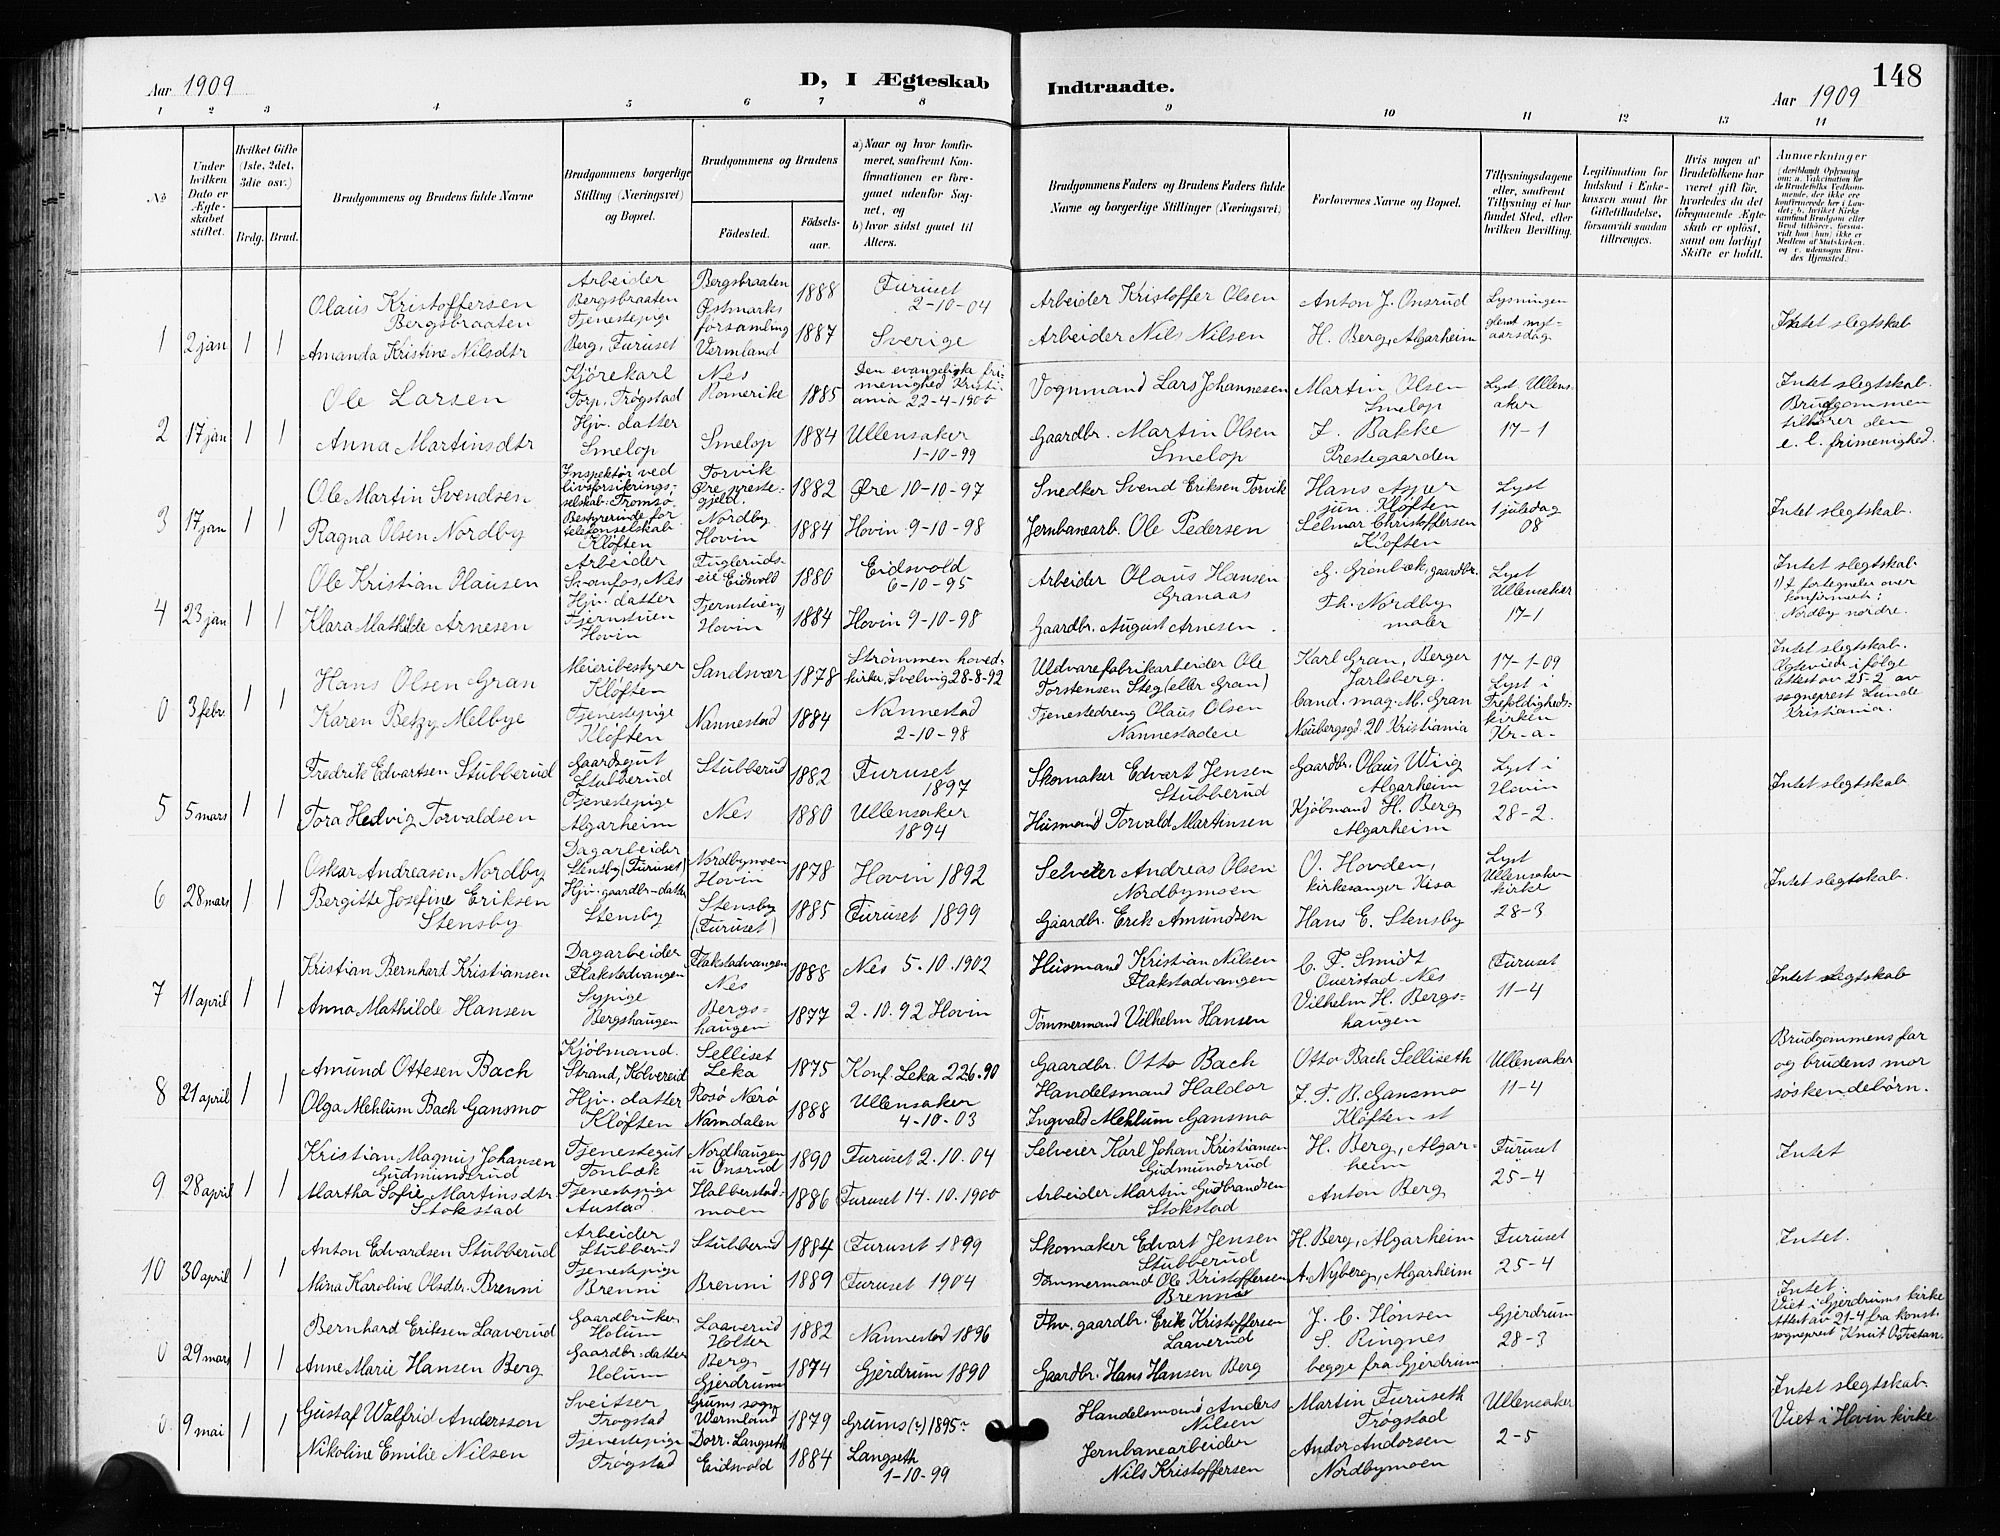 Aar 1909
D, I Ægteskab
Indtraadte.
148
Aar 1909
1 2 3 4 5 6 7 8 9 10 11 12 13 14
No
Under hvilken Dato er Ægteskabet stiftet.
Hvilket Gifte (1ste, 2det, 3die osv.)
Brdg. Brud.
Brudgommens og Brudens fulde Navne
Brudgommens borgerlige Stilling (Næringsvei) og Bopæl.
Brudgommens og Brudens
Fødested.
Fødselsaar.
a) Naar og hvor konfirmeret, saafremt Konfirmationen er foregaaet udenfor Sognet, og
b) hvor sidst gaaet til Alters.
Brudgommens Faders og Brudens Faders fulde Navne og borgerlige Stillinger (Næringsvei)
Forlovernes Navne og Bopæl.
Tillysningsdagene eller, saafremt Tillysning ei har fundet Sted, efter hvilken Bevilling.
Legitimation for Indskud i Enkekassen samt for Giftetilladelse, forsaavidt saadan tiltrænges.
Hvis nogen af Brudefolkene har været gift før, hvorledes da det foregaaende Ægteskab er opløst, samt om lovligt Skifte er holdt.
Anmerkninger
1 2 jan 1 1
Olaus Kristoffersen Bergsbraaten
Arbeider Bergsbraaten
Bergsbraaten Østmarks
1888
Furuset 2-10-04
Arbeider Kristoffer Olsen
Anton J. Onsrud
Lysningen glemt nytaarsdag
Intet slegtskab
Amanda Kristine Nilsdtr
Tjenestepige Berg, Furuset
forsamling Vermland
1887
Sverige
Arbeider Nils Nilsen
H. Berg, Algarheim
2 17 jan 1 1
Ole Larsen
Kjörekarl Torp, Trøgstad
Nes Romerike
1885
Den evangeliske frimenighed Kristiania 22-4-1900
Vognmand Lars Johannesen
Martin Olsen Smelop
Lyst Ullensaker 17-1
Intet slegtskab. Brudgommen tilhører den e. l. frimenighed.
Anna Martinsdtr
Hjv. datter Smelop
Smelop
1884
Ullensaker 1-10-99
Gaardbr. Martin Olsen Smelop
F. Bakke Prestegaarden
3 17 jan 1 1
Ole Martin Svendsen
Inspektør ved livsforsikringsselskab. Tromsø
Torvik Øre prestegjeld.
1882
Øre 10-10-97
Snedker Svend Eriksen Torvik
Hans Asper jun. Kløften
Lyst 1 juledag 08
Intet slegtskab.
Ragna Olsen Nordby
Bestyrerinde for telefonselskab Kløften
Nordby Hovin
1884
Hovin 9-10-98
Jernbanearb. Ole Pedersen
Selmar Christoffersen Kløften
4 23 jan 1 1
Ole Kristian Olausen
Arbeider Svanfos, Nes
Fuglerudseie Eidsvold
1880
Eidsvold 6-10-95
Arbeider Olaus Hansen Granaas
G. Grønbæk, gaardbr.
Lyst Ullensaker 17-1
Intet slegtskab 1) I fortegnelse over konfirmerte: Nordby nordre.
Klara Mathilde Arnesen
Hjv. datter Tjernstuen Hovin
Tjernstuen 1) Hovin
1884
Hovin 9-10-98
Gaardbr. August Arnesen
Th. Nordby maler
0 3 febr. 1 1
Hans Olsen Gran
Meieribestyrer Kløften
Sandsvær
1878
Strømmen hovedkirke, Svelvig 28-8-92
Uldvarefabrikarbeider Ole Torstensen Steg (eller Gran)
Karl Gran, Berger Jarlsberg.
17-1-09 Lyst i Trefoldighedskirken Kr-a-
Intet slegtskab. Ægteviede i følge attest av 25-2 av sogneprest Lunde Kristiania.
Karen Betzy Melbye
Tjenestepige Kløften
Nannestad
1884
Nannestad 2-10-98
Tjenestedreng Olaus Olsen Nannestadeie
Cand. mag. M. Gran Neubergsgd. 20 Kristiania
5 5 mars 1 1
Fredrik Edvartsen Stubberud
Gaardsgut Stubberud
Stubberud
1882
Furuset 1897
Skomaker Edvart Jensen Stubberud
Gaardbr. Olaus Wiig Algarheim
Lyst i Hovin 28-2.
Intet slegtskab.
Tora Hedvig Torvaldsen
Tjenestepige Algarheim
Nes
1880
Ullensaker 1894
Husmand Torvald Martinsen
Kjøbmand H. Berg Algarheim
6 28 mars 1 1
Oskar Andreasen Nordby
Dagarbeider Stensby (Furuset)
Nordbymoen Hovin
1878
Hovin 1892
Selveier Andreas Olsen Nordbymoen
O. Hovden, kirkesanger Kisa
Lyst Ullensaker kirke 28-3
Intet slegtskab.
Bergitte Josefine Eriksen Stensby
Hjv. gaardbr-datter Stensby
Stensby (Furuset)
1885
Furuset 1899
Gaardbr. Erik Amundsen
Hans E. Stensby
7 11 april 1 1
Kristian Bernhard Kristiansen
Dagarbeider Flakstadvangen
Flakstadvangen Nes
1888
Nes 5.10.1902
Husmand Kristian Nilsen Flakstadvangen
C. F. Smidt Ouerstad Nes
Furuset 11-4
Intet slegtskab
Anna Mathilde Hansen
Sypige Bergshaugen
Bergshaugen
1877
2.10.92 Hovin
Tømmermand Vilhelm Hansen
Vilhelm H. Bergshaugen
8 21 april 1 1
Amund Ottesen Bach
Kjøbmand. Strand, Kolvereid
Selliset Leka
1875
Konf. Leka 22 6.90
Gaardbr. Otto Bach
Otto Bach Selliseth
Ullensaker 11-4
Brudgommens far og brudens mor søskendebørn.
Olga Mehlum Bach Gansmo
Hjv. datter Kløften
Rosø Nærø Namdalen
1888
Ullensaker 4-10-03
Handelsmand Haldor Ingvald Mehlum Gansmo
J. T. B. Gansmo Kløften st
9 28 april 1 1
Kristian Magnus Johansen Gudmundsrud
Tjenestegut Tonbæk
Nordhaugen u Onsrud
1890
Furuset 2.10.04
Selveier Karl Johan Kristiansen Gudmundsrud
H. Berg, Algarheim
Furuset 25-4
Intet
Martha Sofie Martinsdtr Stokstad
Tjenestepige Austad
Halberstadmoen
1886
Furuset 14.10.1900
Arbeider Martin Gudbrandsen Stokstad
Anton Berg
10 30 april 1 1
Anton Edvardsen Stubberud
Arbeider Stubberud
Stubberud
1884
Furuset 1899
Skomaker Edvart Jensen Stubberud
H. Berg, Algarheim
Furuset 25-4
Intet.
Mina Karoline Olsdtr. Brenni
Tjenestepige Brenni
Brenni
1889
Furuset 1904
Tømmermand Ole Kristoffersen Brenni
A. Nyberg, Algarheim
0 29 mars 1 1
Bernhard Eriksen Laaverud
Gaardbruker Holum
Laaverud Holter
1882
Nannestad 1896
Fhv. gaardbr. Erik Kristoffersen Laaverud
J. C. Honsen
Gjerdrum 28-3
Intet Viet i Gjerdrums kirke Attest av 21-4 fra konst. sogneprest Knut O. Tvetan.
Anne Marie Hansen Berg
Gaardbr-datter Holum
Berg Gjerdrum
1874
Gjerdrum 1890
Gaardbr. Hans Hansen Berg
S. Ringnes begge fra Gjerdrum
0 9 mai 1 1
Gustaf Walfrid Andersson
Sveitser Trøgstad
Grums sogn Wermland
1879
Grums (?) 1895
Handelsmand Anders Nilsen
Martin Furuseth Trøgstad
Ullensaker 2-5
Intet slegtskab. Viet i Hovin kirke
Nikoline Emilie Nilsen
Tjenestepige Trøgstad
Dorr. Langseth Eidsvold
1884
Langseth 1-10-99
Jernbanearbeider Nils Kristoffersen
Andor Andorsen Nordbymoen